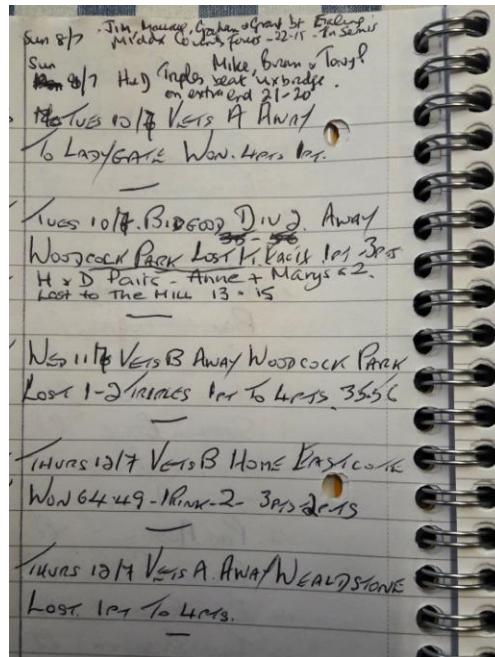 Sun 8/7 Jim, Maurice, Graham & Grant bt Ealing
Middx Counts fours - 22-15 - In Semis
Sun 8/7 H&D Triples Mike, Brian & Tony?
beat Uxbridge
on extra end 21-20
Tues 10/7 Vets A Away
To Ladygate Won. 4pts 1pt.
Tues 10/7. Bidgood Div 2. Away
Woodcock Park Lost 1pt - 3pts
H & D Pairs - Anne + Marys a 2.
Lost to The Hill 13 - 15
Wed 11/7 Vets B Away Woodcock Park
Lost 1-2 Triples 1pt To 4pts. 35-56
Thurs 12/7 Vets B Home Eastcote
Won 64-49 - 1 Rink - 2 - 3pts - 2pts
Thurs 12/7 Vets A. Away Wealdstone
Lost. 1pt To 4pts.